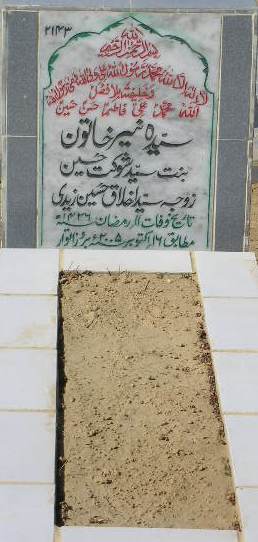 ۲۱۴۳
بسم اللہ الرحمن الرحیم
لا الہ الا اللہ محمد رسول اللہ علی ولی اللہ وصی رسول اللہ
وخلیفتہ بلا فصل
اللہ محمد علی فاطمہ حسن حسین
سیدہ نیر خاتون
بنت سید شوکت حسین
زوجہ سید اخلاق حسین زیدی
تاریخ وفات ۱۱ رمضان ۱۴۲۶ھ
مطابق ۱۶ اکتوبر ۲۰۰۵ء بروز اتوار